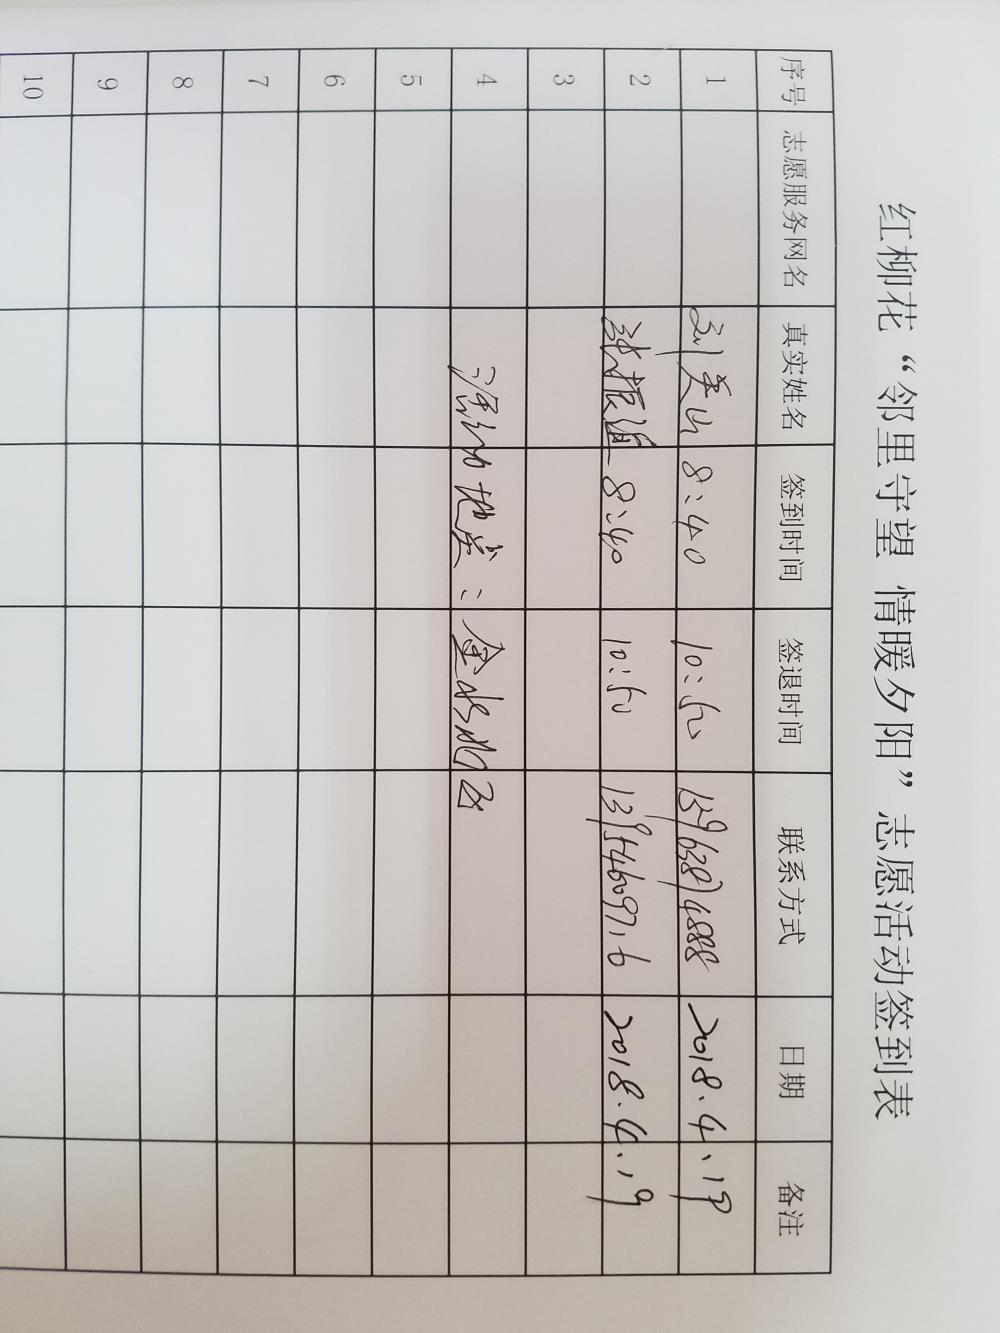 红柳花“邻里守望 情暖夕阳”志愿活动签到表
序号 志愿服务网名 真实姓名 签到时间 签退时间 联系方式 日期 备注
1 刘美山 8:40 10:50 15963874888 2018.4.19
2 张振道 8:40 10:50 2018.4.19
3
4 活动地点:金水湾
5
6
7
8
9
10